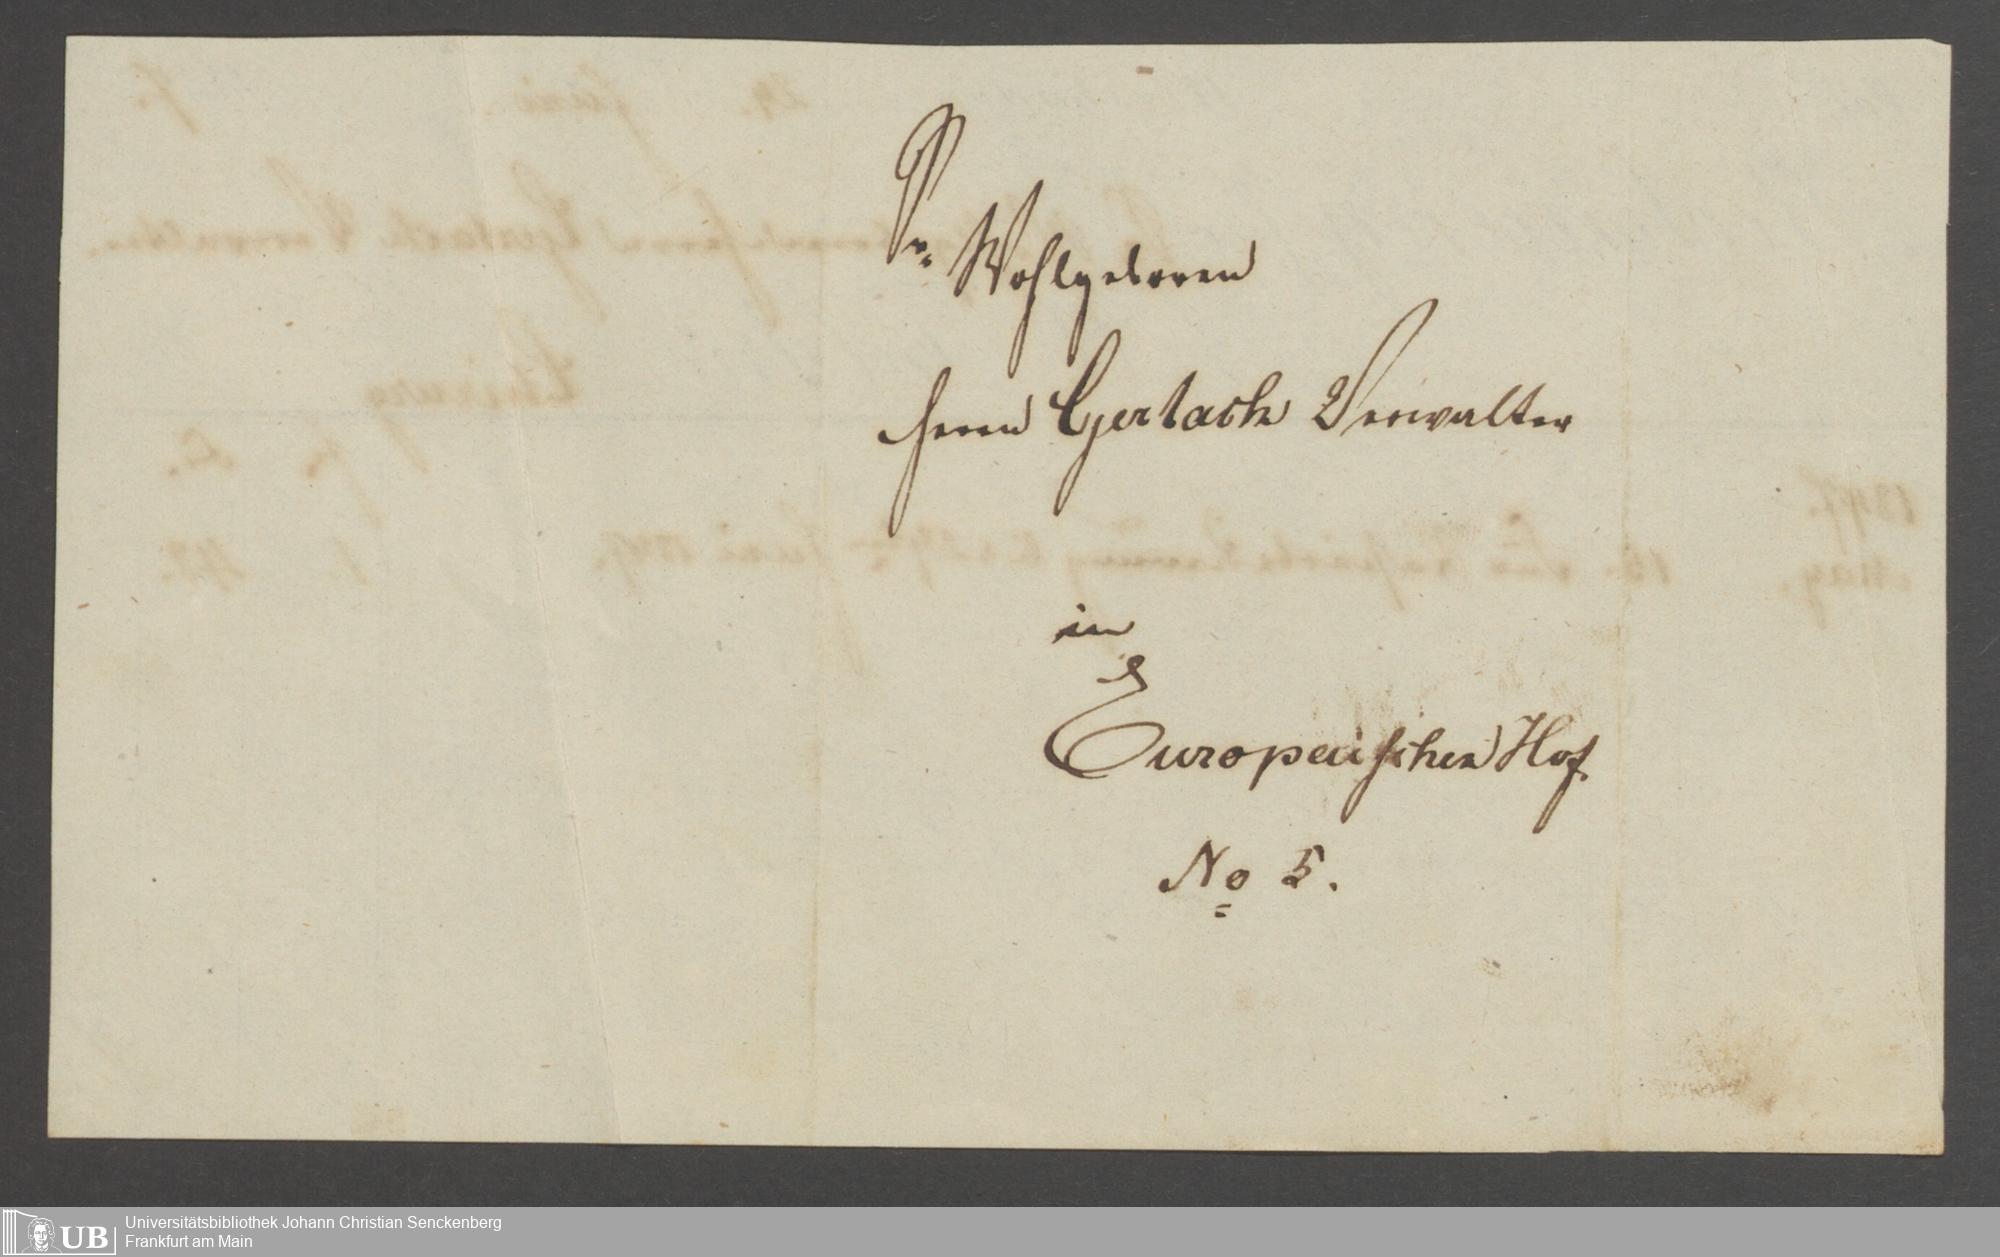 Sr. Wohlgeboren
Herrn Gerlach Verwalter
in
Europeuischen Hof
No 5.
Universitätsbibliothek Johann Christian Senckenberg
Frankfurt am Main
UB